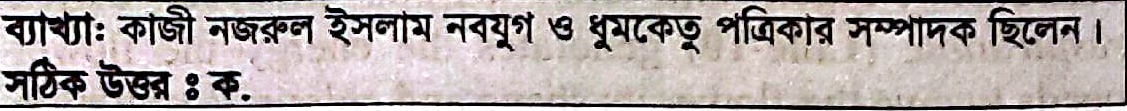 ব্যাখ্যা: কাজী নজরুল ইসলাম নবযুগ ও ধুমকেতু পত্রিকার সম্পাদক ছিলেন।
সঠিক উত্তর ঃ ক.